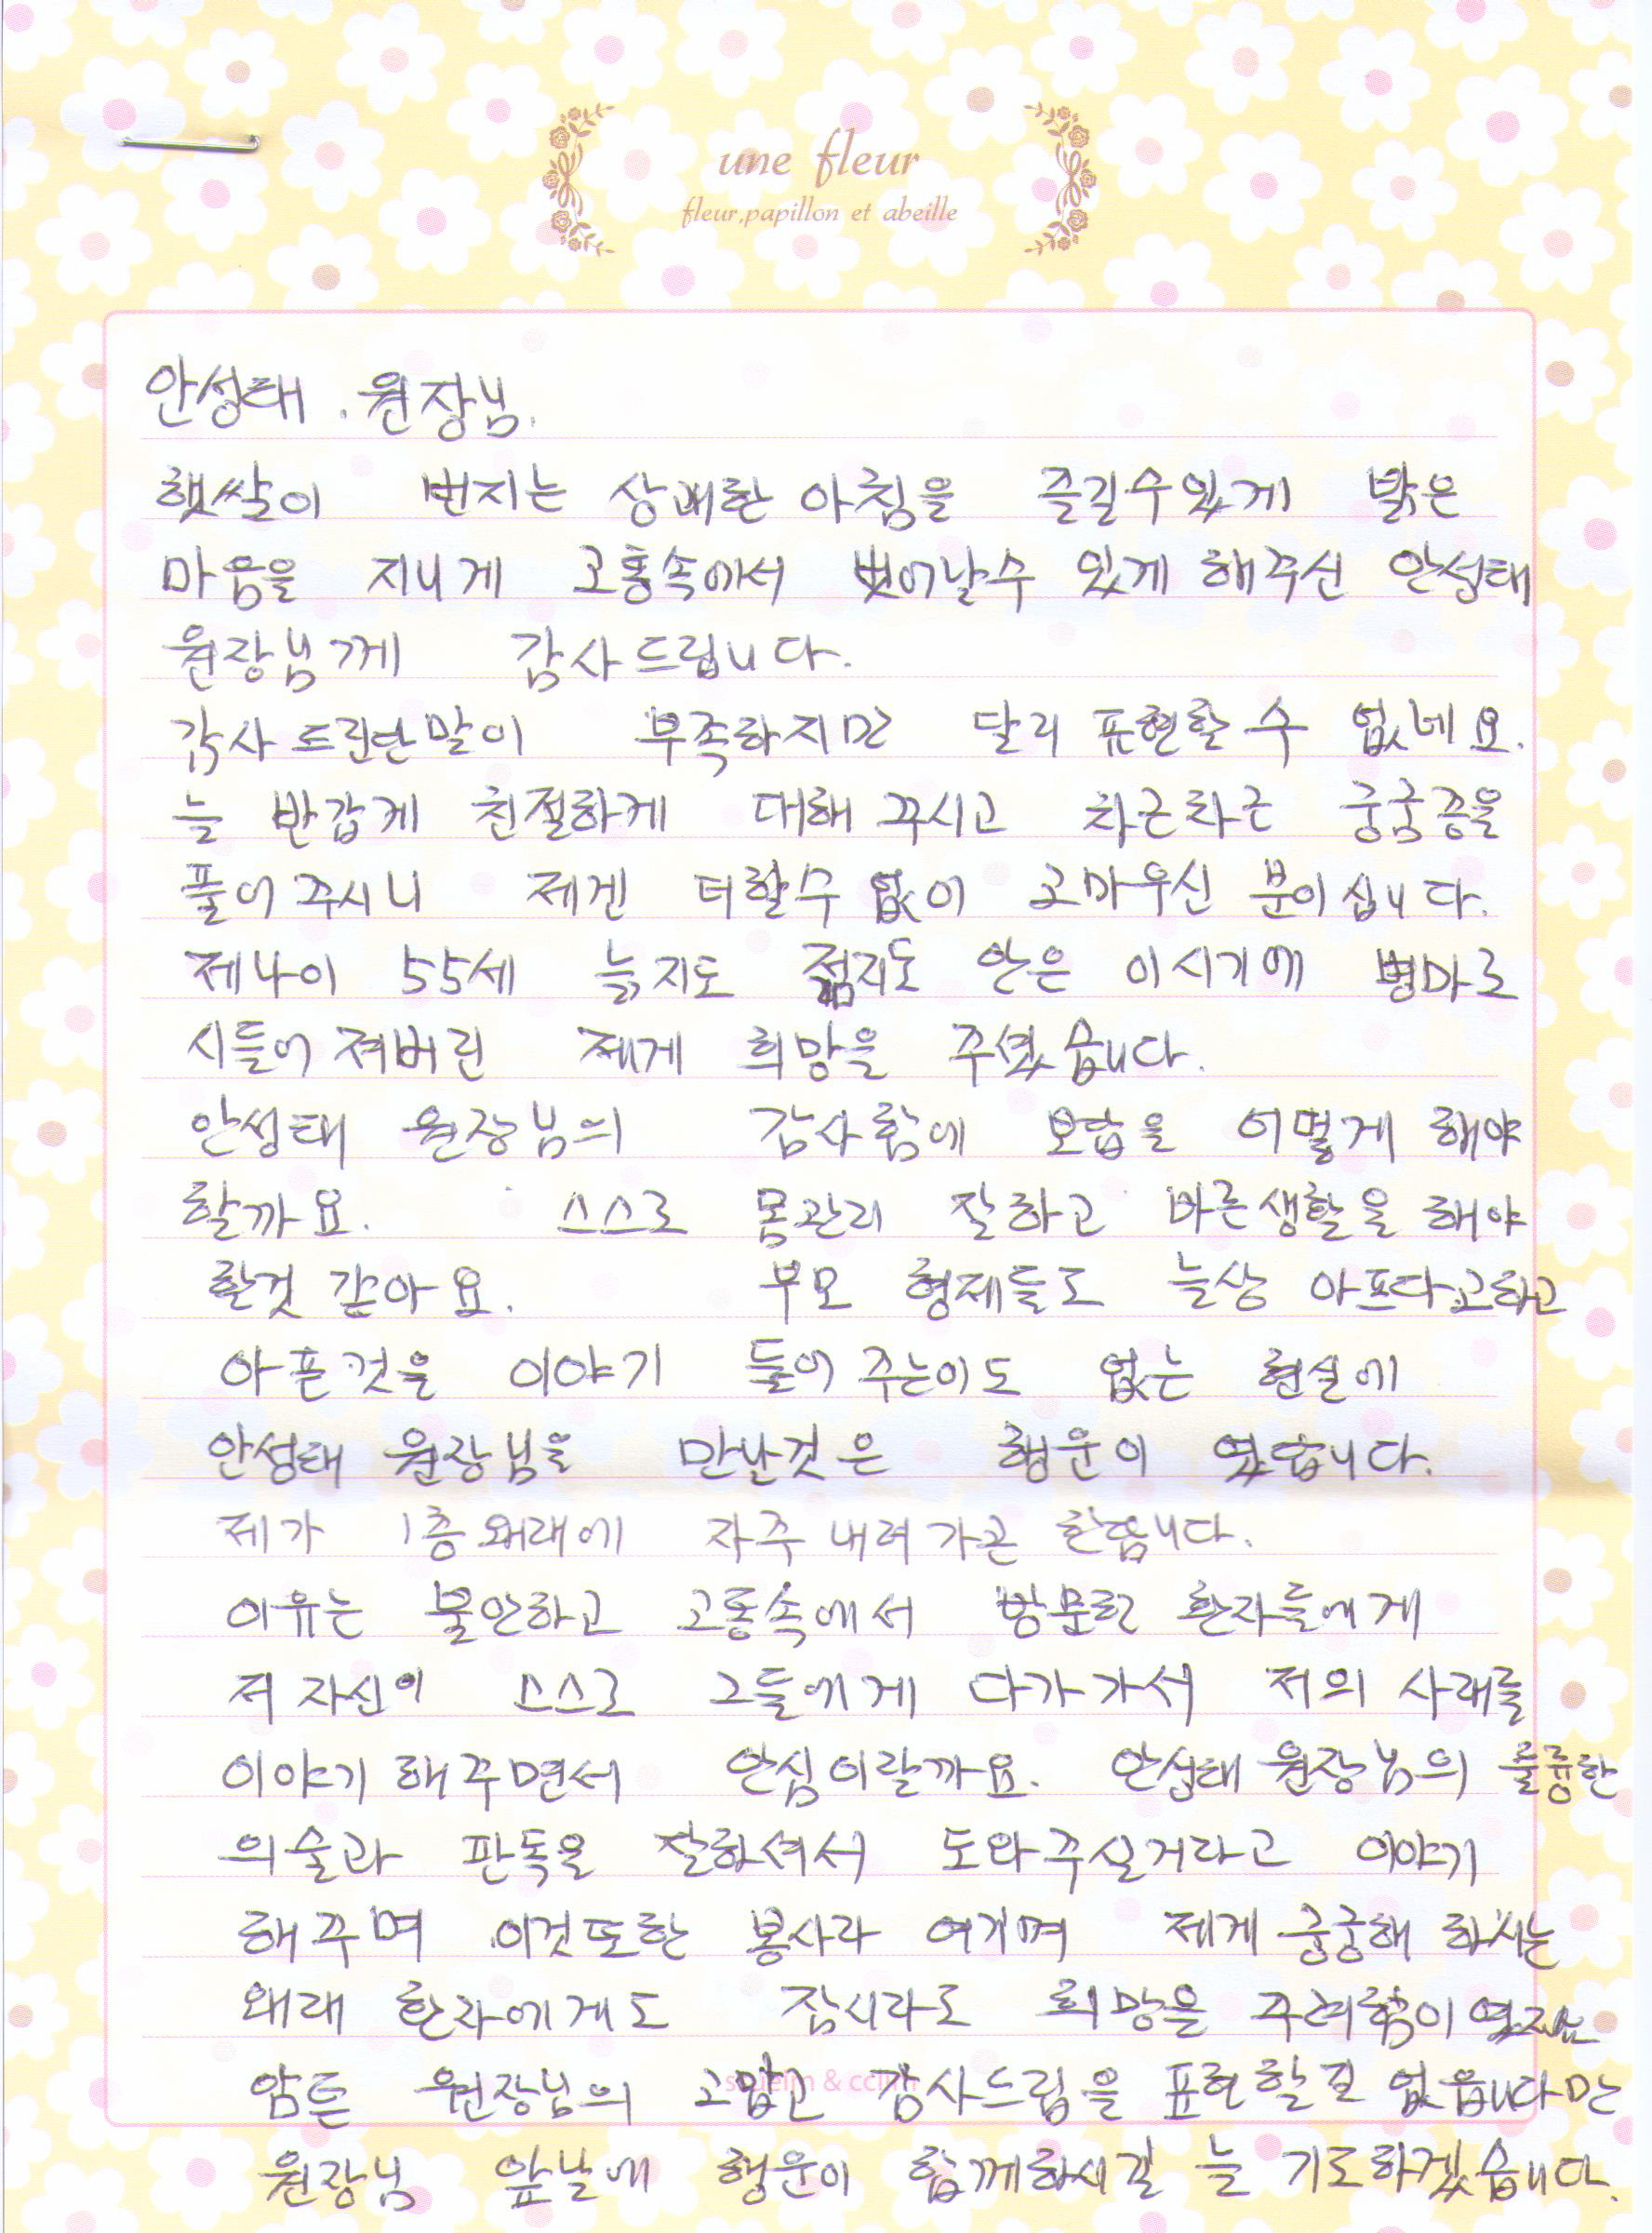 une fleur
fleur,papillon et abeille
안성태 . 원장님.
햇쌀이 번지는 상쾌한 아침을 즐길수있게 밝은
마음을 지니게 고통속에서 벗어날수 있게 해주신 안성태
원장님께 감사드립니다.
감사드린단말이 부족하지만 달리 표현할 수 없네요.
늘 반갑게 친절하게 대해 주시고 차근차근 궁굼증을
풀어주시니 제겐 더할수 없이 고마우신 분이십니다.
제나이 55세 늙지도 젊지도 안은 이시기에 병마로
시들어져버린 제게 희망을 주셨습니다.
안성태 원장님의 감사함에 보답을 어떻게 해야
할까요. 스스로 몸관리 잘하고 바른생활을 해야
할것 같아요. 부모 형제들도 늘상 아프다고하고
아픈것을 이야기 들어주는이도 없는 현실에
안성태 원장님을 만난것은 행운이 였답니다.
제가 1층왜래에 자주 내려가곤 한답니다.
이유는 불안하고 고통속에서 방문한 환자들에게
저 자신이 스스로 그들에게 다가가서 저의 사래를
이야기 해주면서 안심이랄까요. 안성태 원장님의 룰륭한
의술과 판독을 잘하셔서 도와주실거라고 이야기
해주며 이것또한 봉사라 여기며 제게 궁궁해 하시는
왜래 환자에게도 잠시라도 희망을 주려함이
암튼 원장님의 고맙고 감사드림을 표현할길 없읍니다만
원장님 앞날에 행운이 함께하시길 늘 기도하겠습니다.